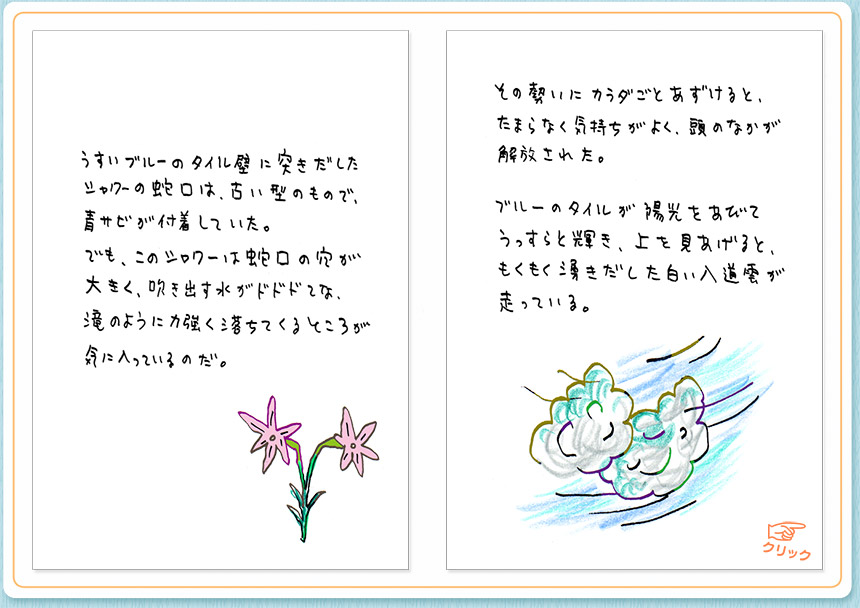 うすいブルーのタイル壁に突きだした
シャワーの蛇口は、古い型のもので、
青サビが付着していた。
でも、このシャワーは蛇口の穴が
大きく、吹き出す水がドドドてな、
滝のように力強く落ちてくるところが
気に入っているのだ。
その勢いにカラダごとあずけると、
たまらなく気持ちがよく、頭のなかが
解放された。
ブルーのタイルが陽光をあびて
うっすらと輝き、上を見あげると、
もくもく湧きだした白い入道雲が
走っている。
クリック